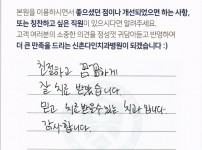 본원을 이용하시면서 좋으셨던 점이나 개선되었으면 하는 사항,
또는 칭찬하고 싶은 직원이 있으시다면 알려주세요.
고객 여러분의 소중한 의견을 정성껏 귀담아듣고 반영하여
더 큰 만족을 드리는 신촌다인치과병원이 되겠습니다 :)
친절하고 꼼꼼하게
잘 치료 받았습니다
믿고 치료받을수 있는 치과 입니다
감사합니다.